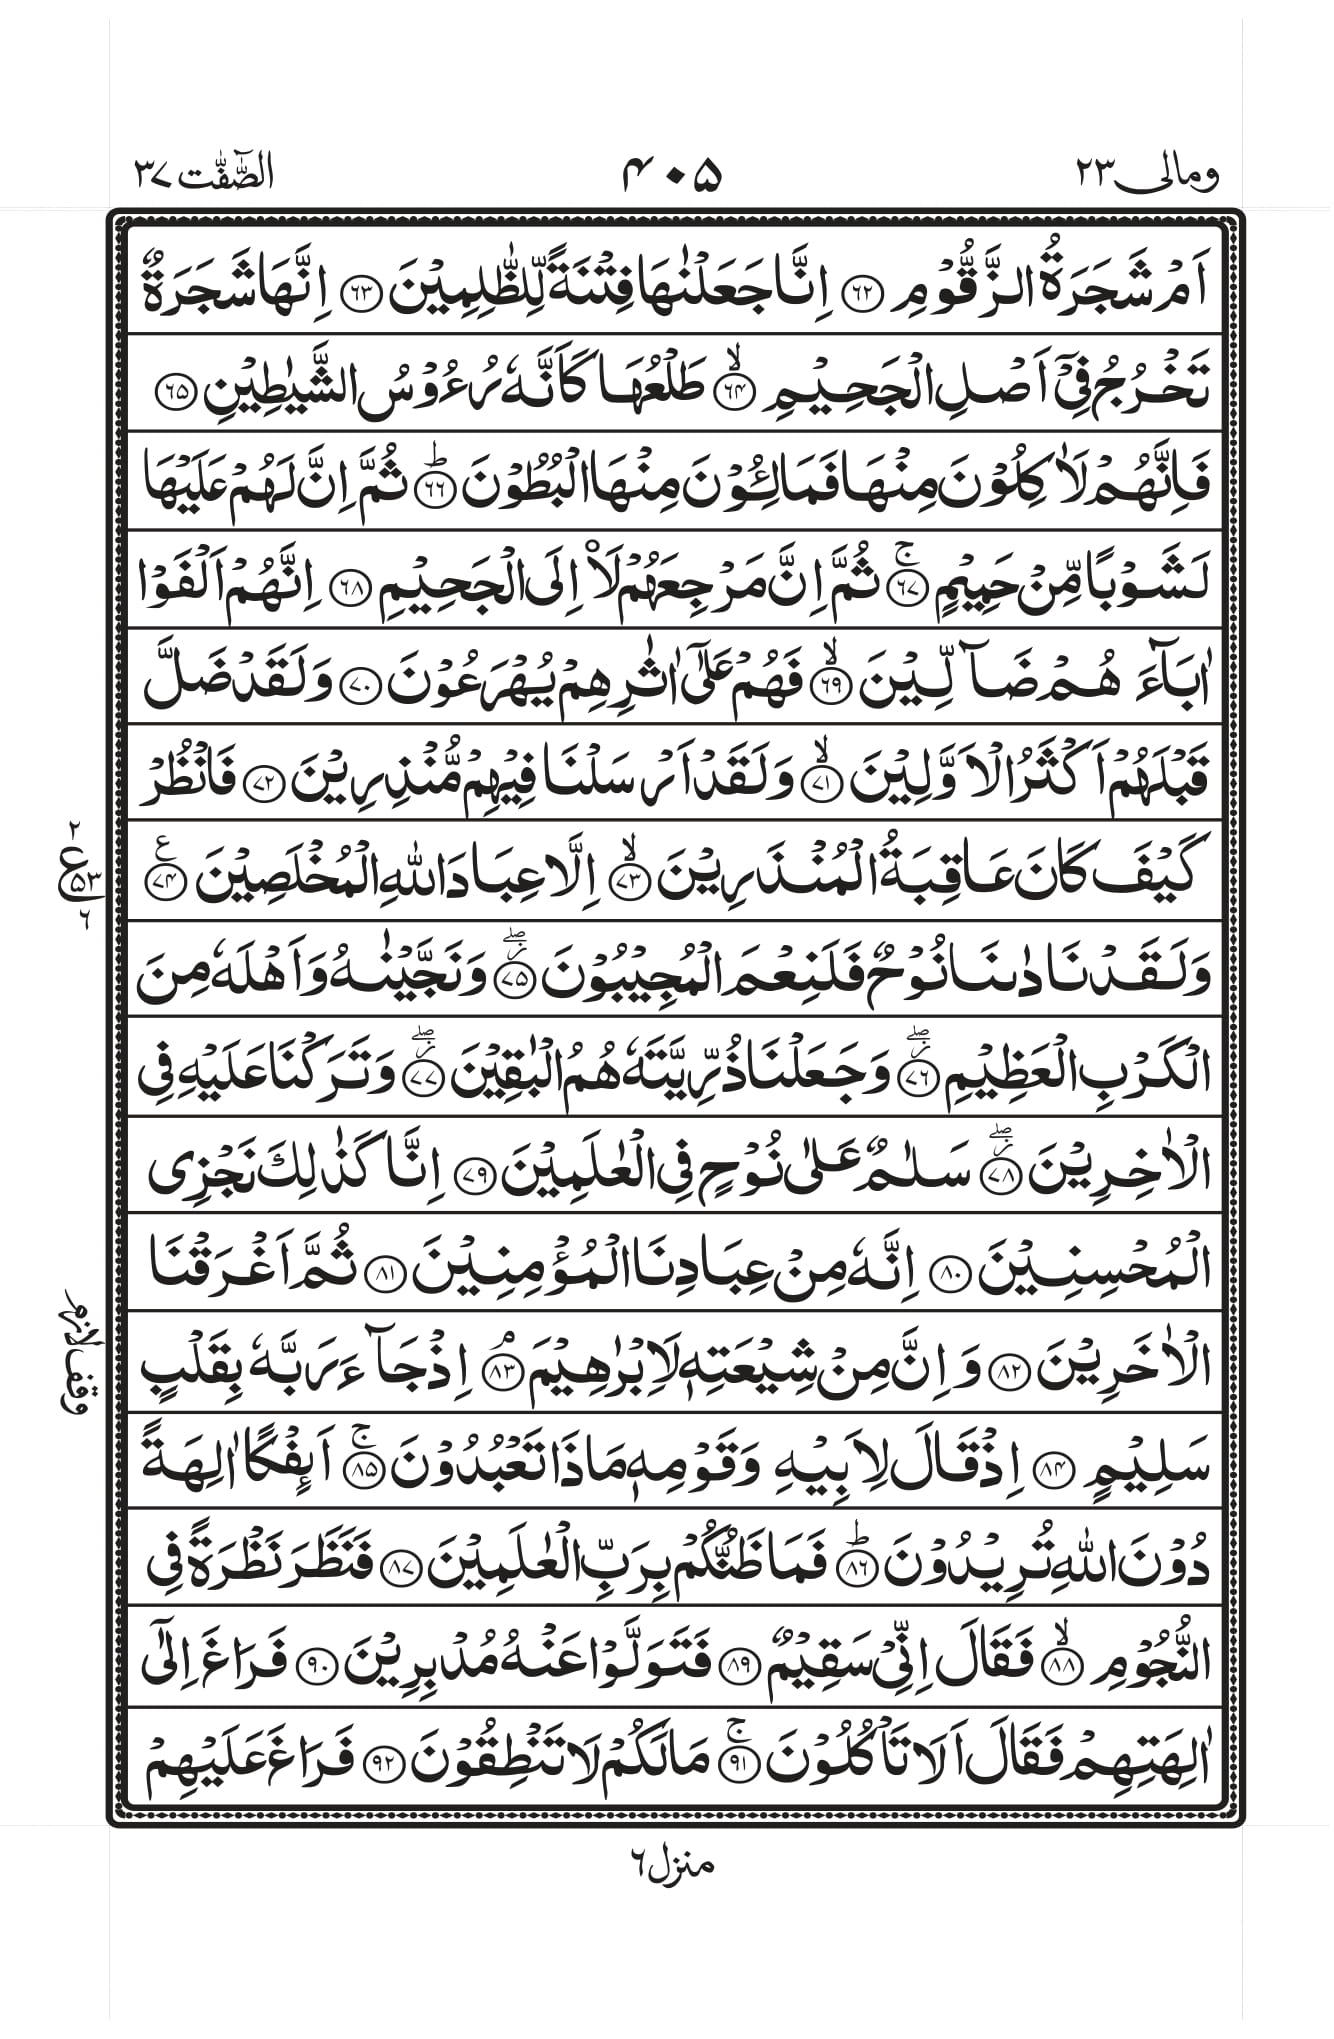 ومالی ٢٣ ۴۰۵ الصّٰٓفّٰت ٣٧
اَمْ شَجَرَةُ الزَّقُّوْمِ ﴿۶۲﴾ اِنَّا جَعَلْنٰهَا فِتْنَةً لِّلظّٰلِمِيْنَ ﴿۶۳﴾ اِنَّهَا شَجَرَةٌ
تَخْرُجُ فِىْۤ اَصْلِ الْجَحِيْمِ ۙ﴿۶۴﴾ طَلْعُهَا كَاَنَّهٗ رُءُوْسُ الشَّيٰطِيْنِ ﴿۶۵﴾
فَاِنَّهُمْ لَاٰكِلُوْنَ مِنْهَا فَمَالِـُٔوْنَ مِنْهَا الْبُطُوْنَ ؕ﴿۶۶﴾ ثُمَّ اِنَّ لَهُمْ عَلَيْهَا
لَشَوْبًا مِّنْ حَمِيْمٍ ۚ﴿۶۷﴾ ثُمَّ اِنَّ مَرْجِعَهُمْ لَا۟ اِلَى الْجَحِيْمِ ﴿۶۸﴾ اِنَّهُمْ اَلْفَوْا
اٰبَآءَ هُمْ ضَآ لِّيْنَ ۙ﴿۶۹﴾ فَهُمْ عَلٰٓى اٰثٰرِهِمْ يُهْرَعُوْنَ ﴿۷۰﴾ وَلَقَدْ ضَلَّ
قَبْلَهُمْ اَكْثَرُ الْاَوَّلِيْنَ ۙ﴿۷۱﴾ وَلَقَدْ اَرْسَلْنَا فِيْهِمْ مُّنْذِرِيْنَ ﴿۷۲﴾ فَانْظُرْ
كَيْفَ كَانَ عَاقِبَةُ الْمُنْذَرِيْنَ ۙ﴿۷۳﴾ اِلَّا عِبَادَ اللّٰهِ الْمُخْلَصِيْنَ ﴿۷۴﴾ ع
٢ ع ۵۳ ۶
وَلَقَدْ نَادٰىنَا نُوْحٌ فَلَنِعْمَ الْمُجِيْبُوْنَ ۖز﴿۷۵﴾ وَنَجَّيْنٰهُ وَاَهْلَهٗ مِنَ
الْكَرْبِ الْعَظِيْمِ ۖز﴿۷۶﴾ وَجَعَلْنَا ذُرِّيَّتَهٗ هُمُ الْبٰقِيْنَ ۖز﴿۷۷﴾ وَتَرَكْنَا عَلَيْهِ فِى
الْاٰخِرِيْنَ ۖز﴿۷۸﴾ سَلٰمٌ عَلٰى نُوْحٍ فِى الْعٰلَمِيْنَ ﴿۷۹﴾ اِنَّا كَذٰلِكَ نَجْزِى
الْمُحْسِنِيْنَ ﴿۸۰﴾ اِنَّهٗ مِنْ عِبَادِنَا الْمُؤْمِنِيْنَ ﴿۸۱﴾ ثُمَّ اَغْرَقْنَا
الْاٰخَرِيْنَ ﴿۸۲﴾ وَاِنَّ مِنْ شِيْعَتِهٖ لَاِبْرٰهِيْمَ ۘ﴿۸۳﴾ اِذْ جَآءَ رَبَّهٗ بِقَلْبٍ
وقف لازم
سَلِيْمٍ ﴿۸۴﴾ اِذْ قَالَ لِاَبِيْهِ وَقَوْمِهٖ مَاذَا تَعْبُدُوْنَ ۚ﴿۸۵﴾ اَئِفْكًا اٰلِهَةً
دُوْنَ اللّٰهِ تُرِيْدُوْنَ ؕ﴿۸۶﴾ فَمَا ظَنُّكُمْ بِرَبِّ الْعٰلَمِيْنَ ﴿۸۷﴾ فَنَظَرَ نَظْرَةً فِى
النُّجُوْمِ ۙ﴿۸۸﴾ فَقَالَ اِنِّىْ سَقِيْمٌ ﴿۸۹﴾ فَتَوَلَّوْا عَنْهُ مُدْبِرِيْنَ ﴿۹۰﴾ فَرَاغَ اِلٰٓى
اٰلِهَتِهِمْ فَقَالَ اَلَا تَاْكُلُوْنَ ۚ﴿۹۱﴾ مَا لَكُمْ لَا تَنْطِقُوْنَ ﴿۹۲﴾ فَرَاغَ عَلَيْهِمْ
منزل ۶